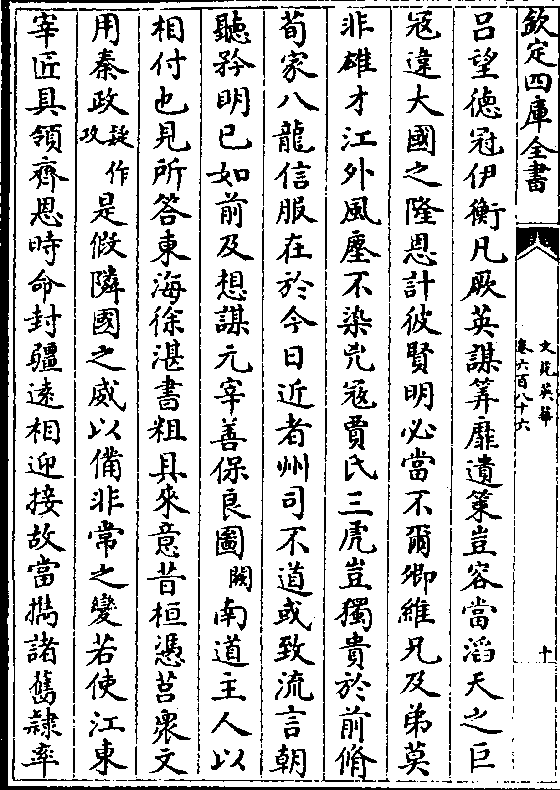 欽定四庫全書
文苑英華
卷六百八十六
十
呂望德冠伊衡凡厥英謀筭靡遺策豈容當滔天之巨
冦違大國之隆恩計彼賢明必當不爾卿維兄及弟莫
非雄才江外風塵不染兇冦賈氏三虎豈獨貴於前脩
荀家八龍信服在於今日近者州司不道或致流言朝
聽矜明已如前及想謀元宰善保良圖闕南道主人以
相付也見所答東海徐湛書粗具來意昔桓憑莒衆文
用秦政疑作攻是假隣國之威以備非常之變若使江東
宰匠具領齊恩時命封疆遠相迎接故當攜諸舊隸率